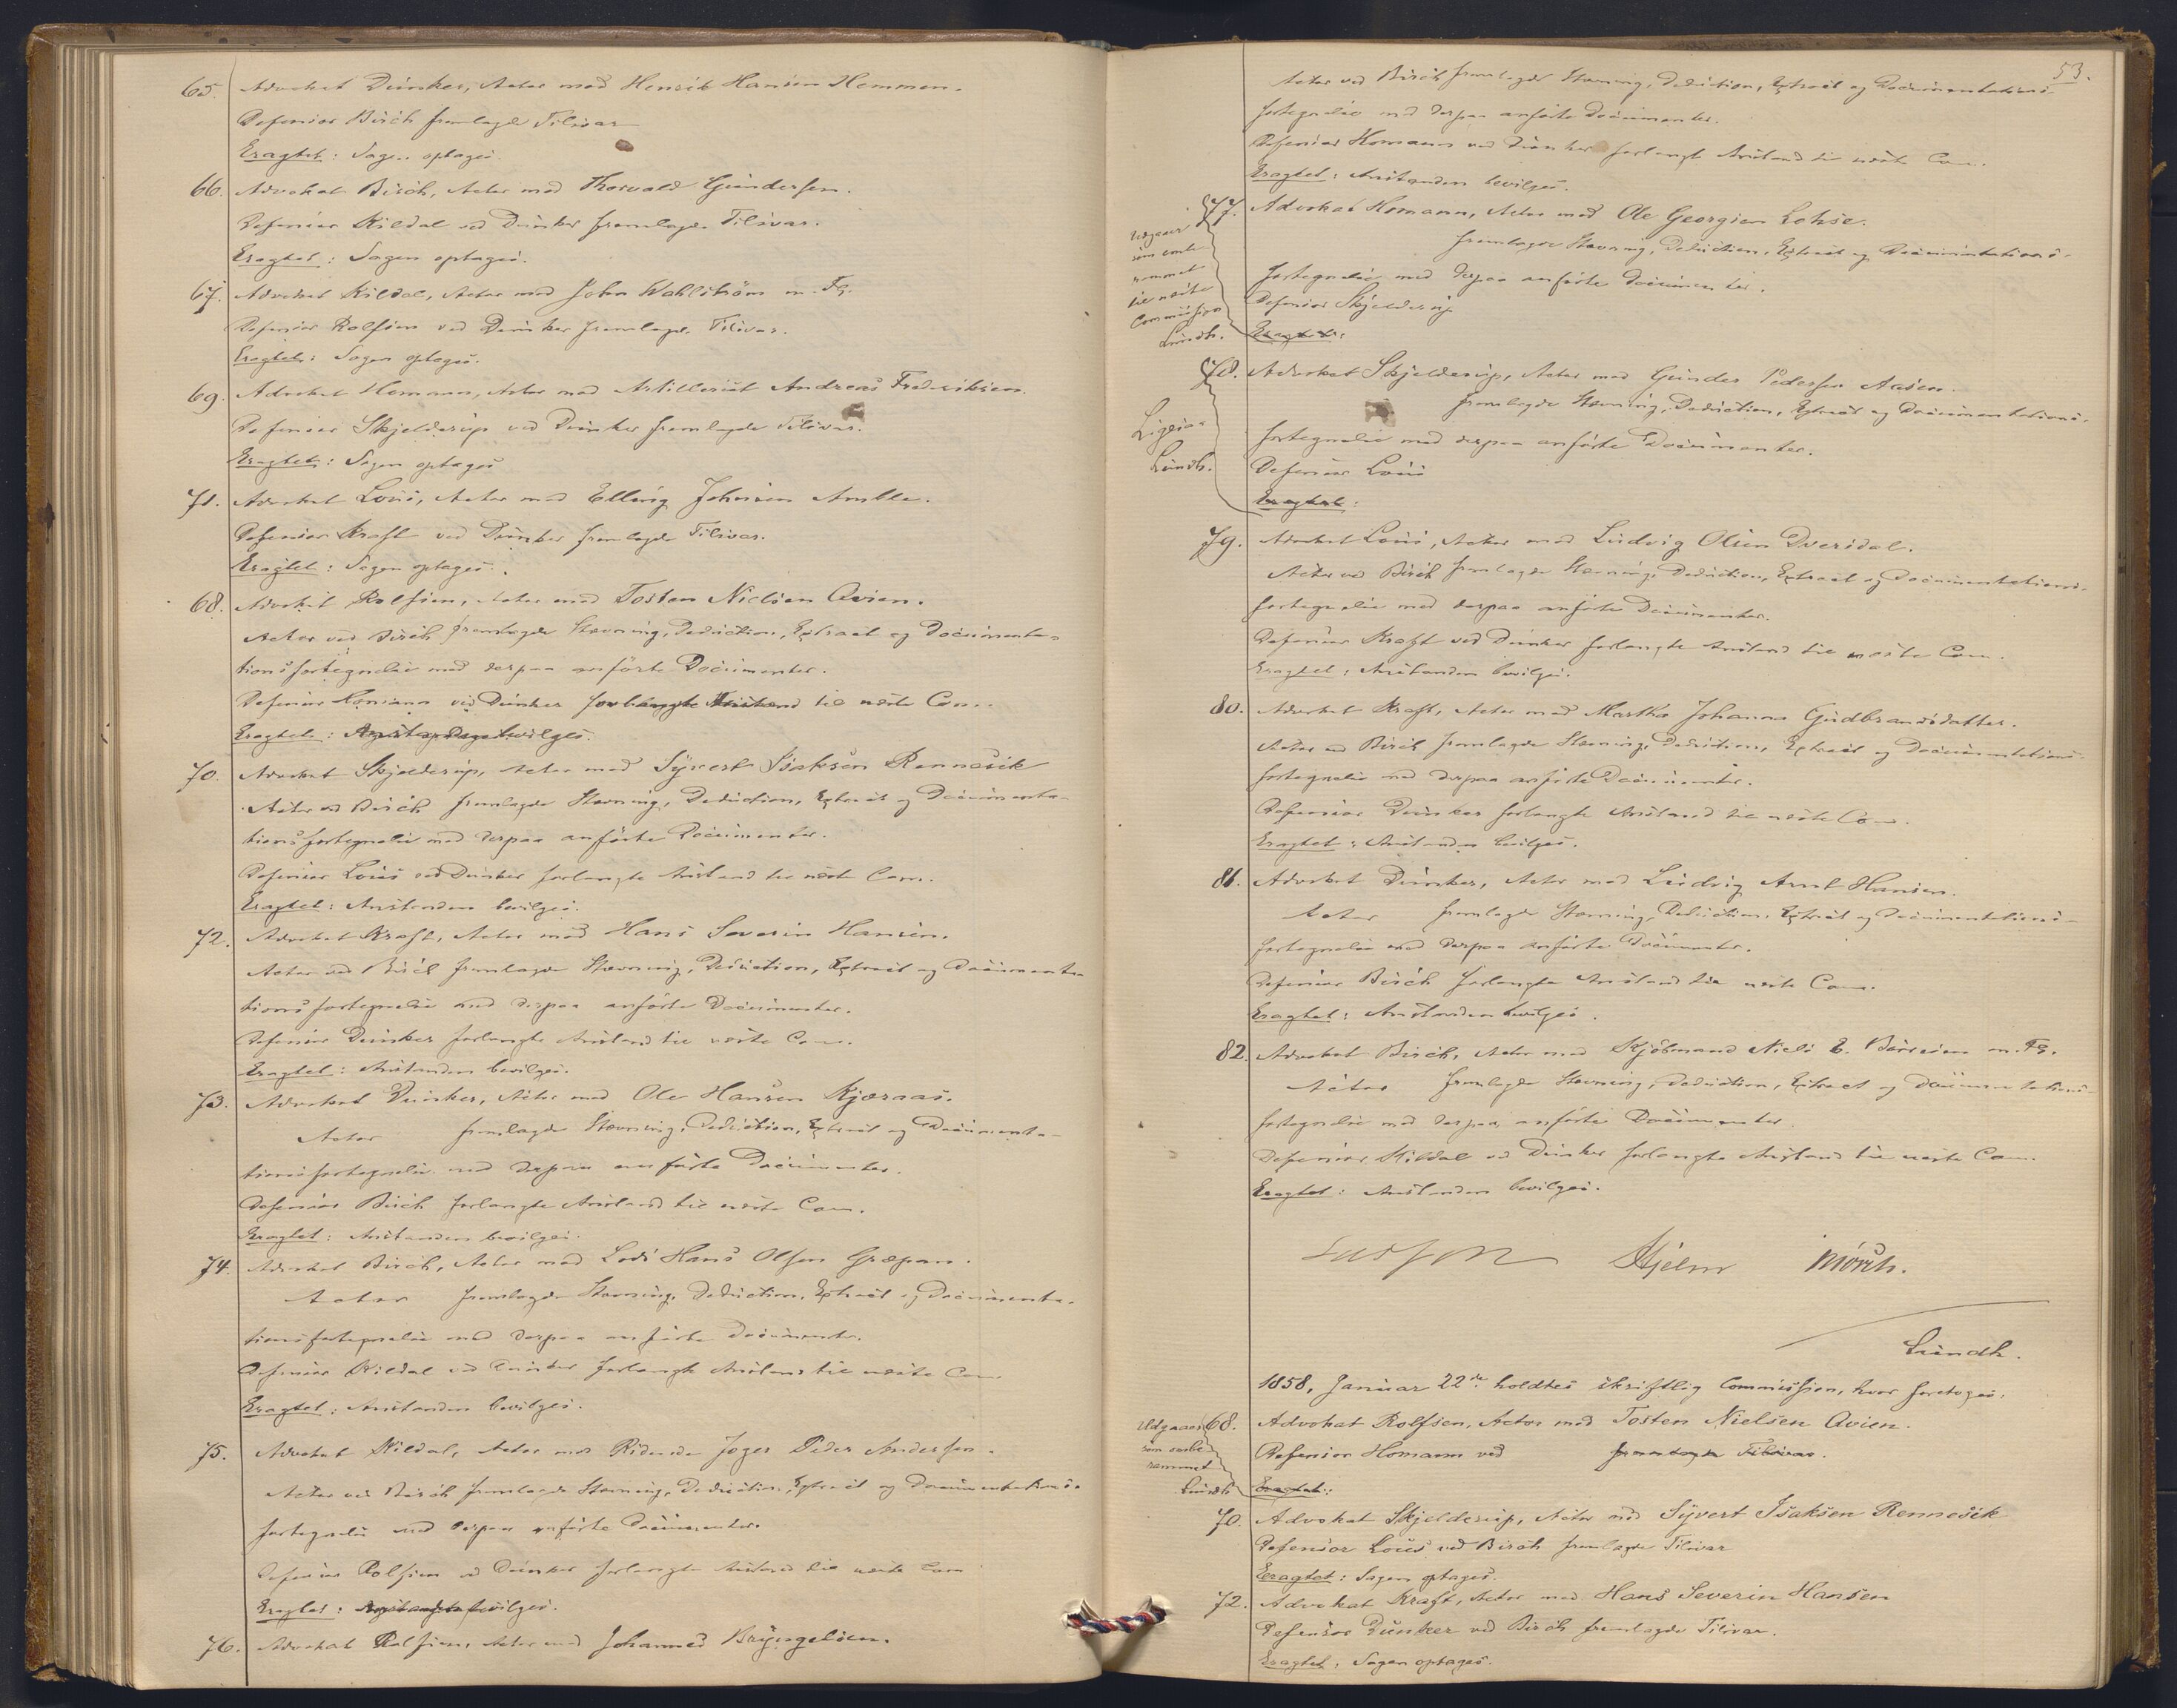 65. Advokat Dunker, Actor mod Henrik Hansen Hemmen.
Defensor Birch fremlagde Tilsvar
Eragtet: Sagen optages.
66. Advokat Birch, Actor mod Thorvald Gundersen.
Defensor Kildal ved Dunker fremlagde Tilsvar.
Eragtet: Sagen optages.
67. Advokat Kildal, Actor mod John Wahlström m. Fl.
Defensor Rolfsen ved Dunker fremlagde Tilsvar.
Eragtet: Sagen optages.
69. Advokat Homann, Actor mod Artillerist Andreas Frederiksen.
Defensor Skjelderup ved Dunker fremlagde Tilsvar.
Eragtet: Sagen optages
71. Advokat Lous, Actor mod Elling Johnsen Amble.
Defensor Kraft ved Dunker fremlagde Tilsvar.
Eragtet: Sagen optages.
68. Advokat Rolfsen, Actor mod Tosten Nielsen Avien.
Actor ved Birch fremlagde Stevning, Deduction, Extract og Documenta-
tionsfortegnelse med derpaa anførte Documenter.
Defensor Homann ved Dunker forlangte Anstand til næste Com.
Eragtet: Anstanden bevilges.
70. Advokat Skjelderup, Actor mod Syvert Isaksen Rennesik
Actor ved Birch fremlagde Stævning, Deduction, Extract og Documenta-
tionsfortegnelse med derpaa anførte Documenter.
Defensor Lous ved Dunker forlangte Anstand til næste Com.
Eragtet: Anstanden bevilges.
72. Advokat Kraft, Actor mod Hans Severin Hansen.
Actor ved Birch fremlagde Stævning, Deduction, Extract og Documenta-
tionsfortegnelse med derpaa anførte Documenter.
Defensor Dunker forlangte Anstand til næste Com.
Eragtet: Anstanden bevilges.
73. Advokat Dunker, Actor mod Ole Hansen Kjøraas.
Actor fremlagde Stævning, Deduction, Extract og Documenta-
tionsfortegnelse med derpaa anførte Documenter.
Defensor Birch forlangte Anstand til næste Com.
Eragtet: Anstanden bevilges.
74. Advokat Birch, Actor mod Lods Hans Olsen Græpan.
Actor fremlagde Stævning, Deduction, Extract og Documenta-
tionsfortegnelse med derpaa anførte Documenter.
Defensor Kildal ved Dunker forlangte Anstand til næste Com.
Eragtet: Anstanden bevilges.
75. Advokat Kildal, Actor mod Ridende Jæger Peder Andersen.
Actor ved Birch fremlagde Stævning, Deduction, Extract og Documentations-
fortegnelse med derpaa anførte Documenter.
Defensor Rolfsen ved Dunker forlangte Anstand til næste Com
Eragtet: Anstanden bevilges.
76. Advokat Rolfsen, Actor mod Johannes Bryngelsen.
53.
Actor ved Birch fremlagde Stævning, Deduction, Extract og Documentations-
fortegnelse med derpaa anførte Documenter.
Defensor Homann ved Dunker forlangte Anstand til næste Com.
Eragtet: Anstanden bevilges.
77. Advokat Homann, Actor mod Ole Georgsen Lohse.
fremlagde Stævning, Deduction, Extract og Documentations-
fortegnelse med derpaa anførte Documenter.
Defensor Skjelderup
Eragtet:
Udgaaer
som ombe
rammet
til næste
Commission
Lundh.
78. Advokat Skjelderup, Actor mod Gunder Pedersen Aasen.
fremlagde Stævning, Deduction, Extract og Documentations-
fortegnelse med derpaa anførte Documenter.
Defensor Lous
Eragtet:
Ligesaa
Lundh.
79. Advokat Lous, Actor mod Ludvig Olsen Dversdal.
Actor ved Birch fremlagde Stævning, Deduction, Extract og Documentations-
fortegnelse med derpaa anførte Documenter.
Defensor Kraft ved Dunker forlangte Anstand til næste Com.
Eragtet: Anstanden bevilges.
80. Advokat Kraft, Actor mod Martha Johanna Gudbrandsdatter.
Actor ved Birch fremlagde Stævning, Deduction, Extract og Documentations-
fortegnelse med derpaa anførte Documenter.
Defensor Dunker forlangte Anstand til næste Com.
Eragtet: Anstanden bevilges.
81. Advokat Dunker, Actor mod Ludvig Arnt Hansen.
Actor fremlagde Stævning, Deduction, Extract og Documentations-
fortegnelse med derpaa anførte Documenter.
Defensor Birch forlangte Anstand til næste Com.
Eragtet: Anstanden bevilges.
82. Advokat Birch, Actor mod Kjøbmand Niels E. m. Fl.
Actor fremlagde Stævning, Deduction, Extract og Documentations-
fortegnelse med derpaa anførte Documenter
Defensor Kildal ved Dunker forlangte Anstand til næste Com.
Eragtet: Anstanden bevilges.
Lasson Hjelm Mörch.
Lundh.
1858, Januar 22de holdtes skriftlig Commission, hvor foretoges:
68. Advokat Rolfsen, Actor mod Tosten Nielsen Avien.
Defensor Homann ved fremlagde Tilsvar.
Eragtet:
Udgaaer
som ombe
rammet
Lundh
70. Advokat Skjelderup, Actor mod Syvert Isaksen Rennesik
Defensor Lous ved Birch fremlagde Tilsvar
Eragtet: Sagen optages.
72. Advokat Kraft, Actor mod Hans Severin Hansen
Defensor Dunker ved Birch fremlagde Tilsvar.
Eragtet: Sagen optages.